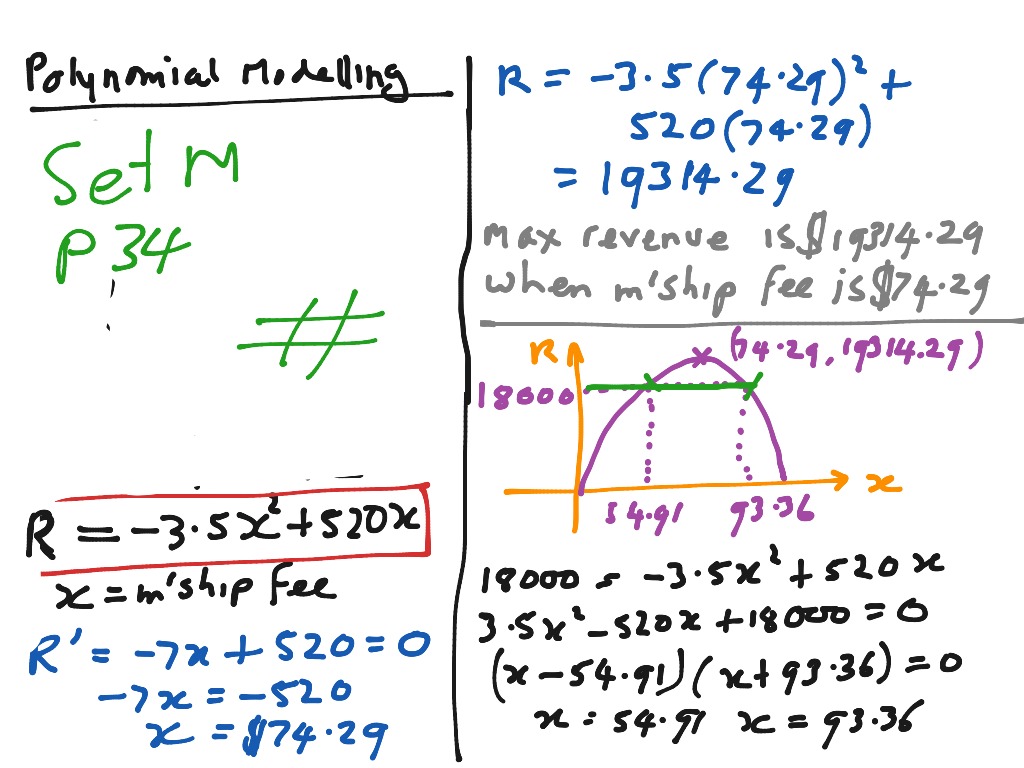 Polynomial Modelling
Set M
P 34
R = -3.5x²+520x
x = m'ship fee
R' = -7x + 520 = 0
-7x = -520
x = $74.29
R = -3.5(74.29)² +
520(74.29)
= 19314.29
Max revenue is $19314.29
when m'ship fee is $74.29
R
(74.29, 19314.29)
18000
x
54.91 93.36
18000 = -3.5x² + 520x
3.5x² - 520x + 18000 = 0
(x - 54.91)(x + 93.36) = 0
x = 54.91 x = 93.36